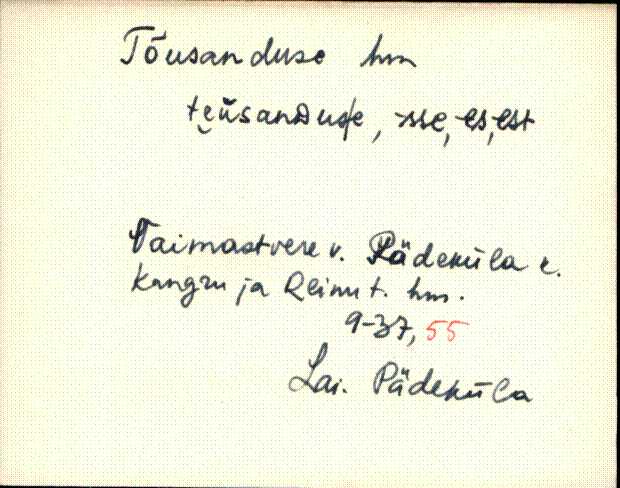 Tõusanduse hm
teüsanduse, -sse, -es, -est
Vaimastvere v. Pädeküla k.
Kangru ja Reinu t. hm.
9-37, 55
Lai. Pädeküla